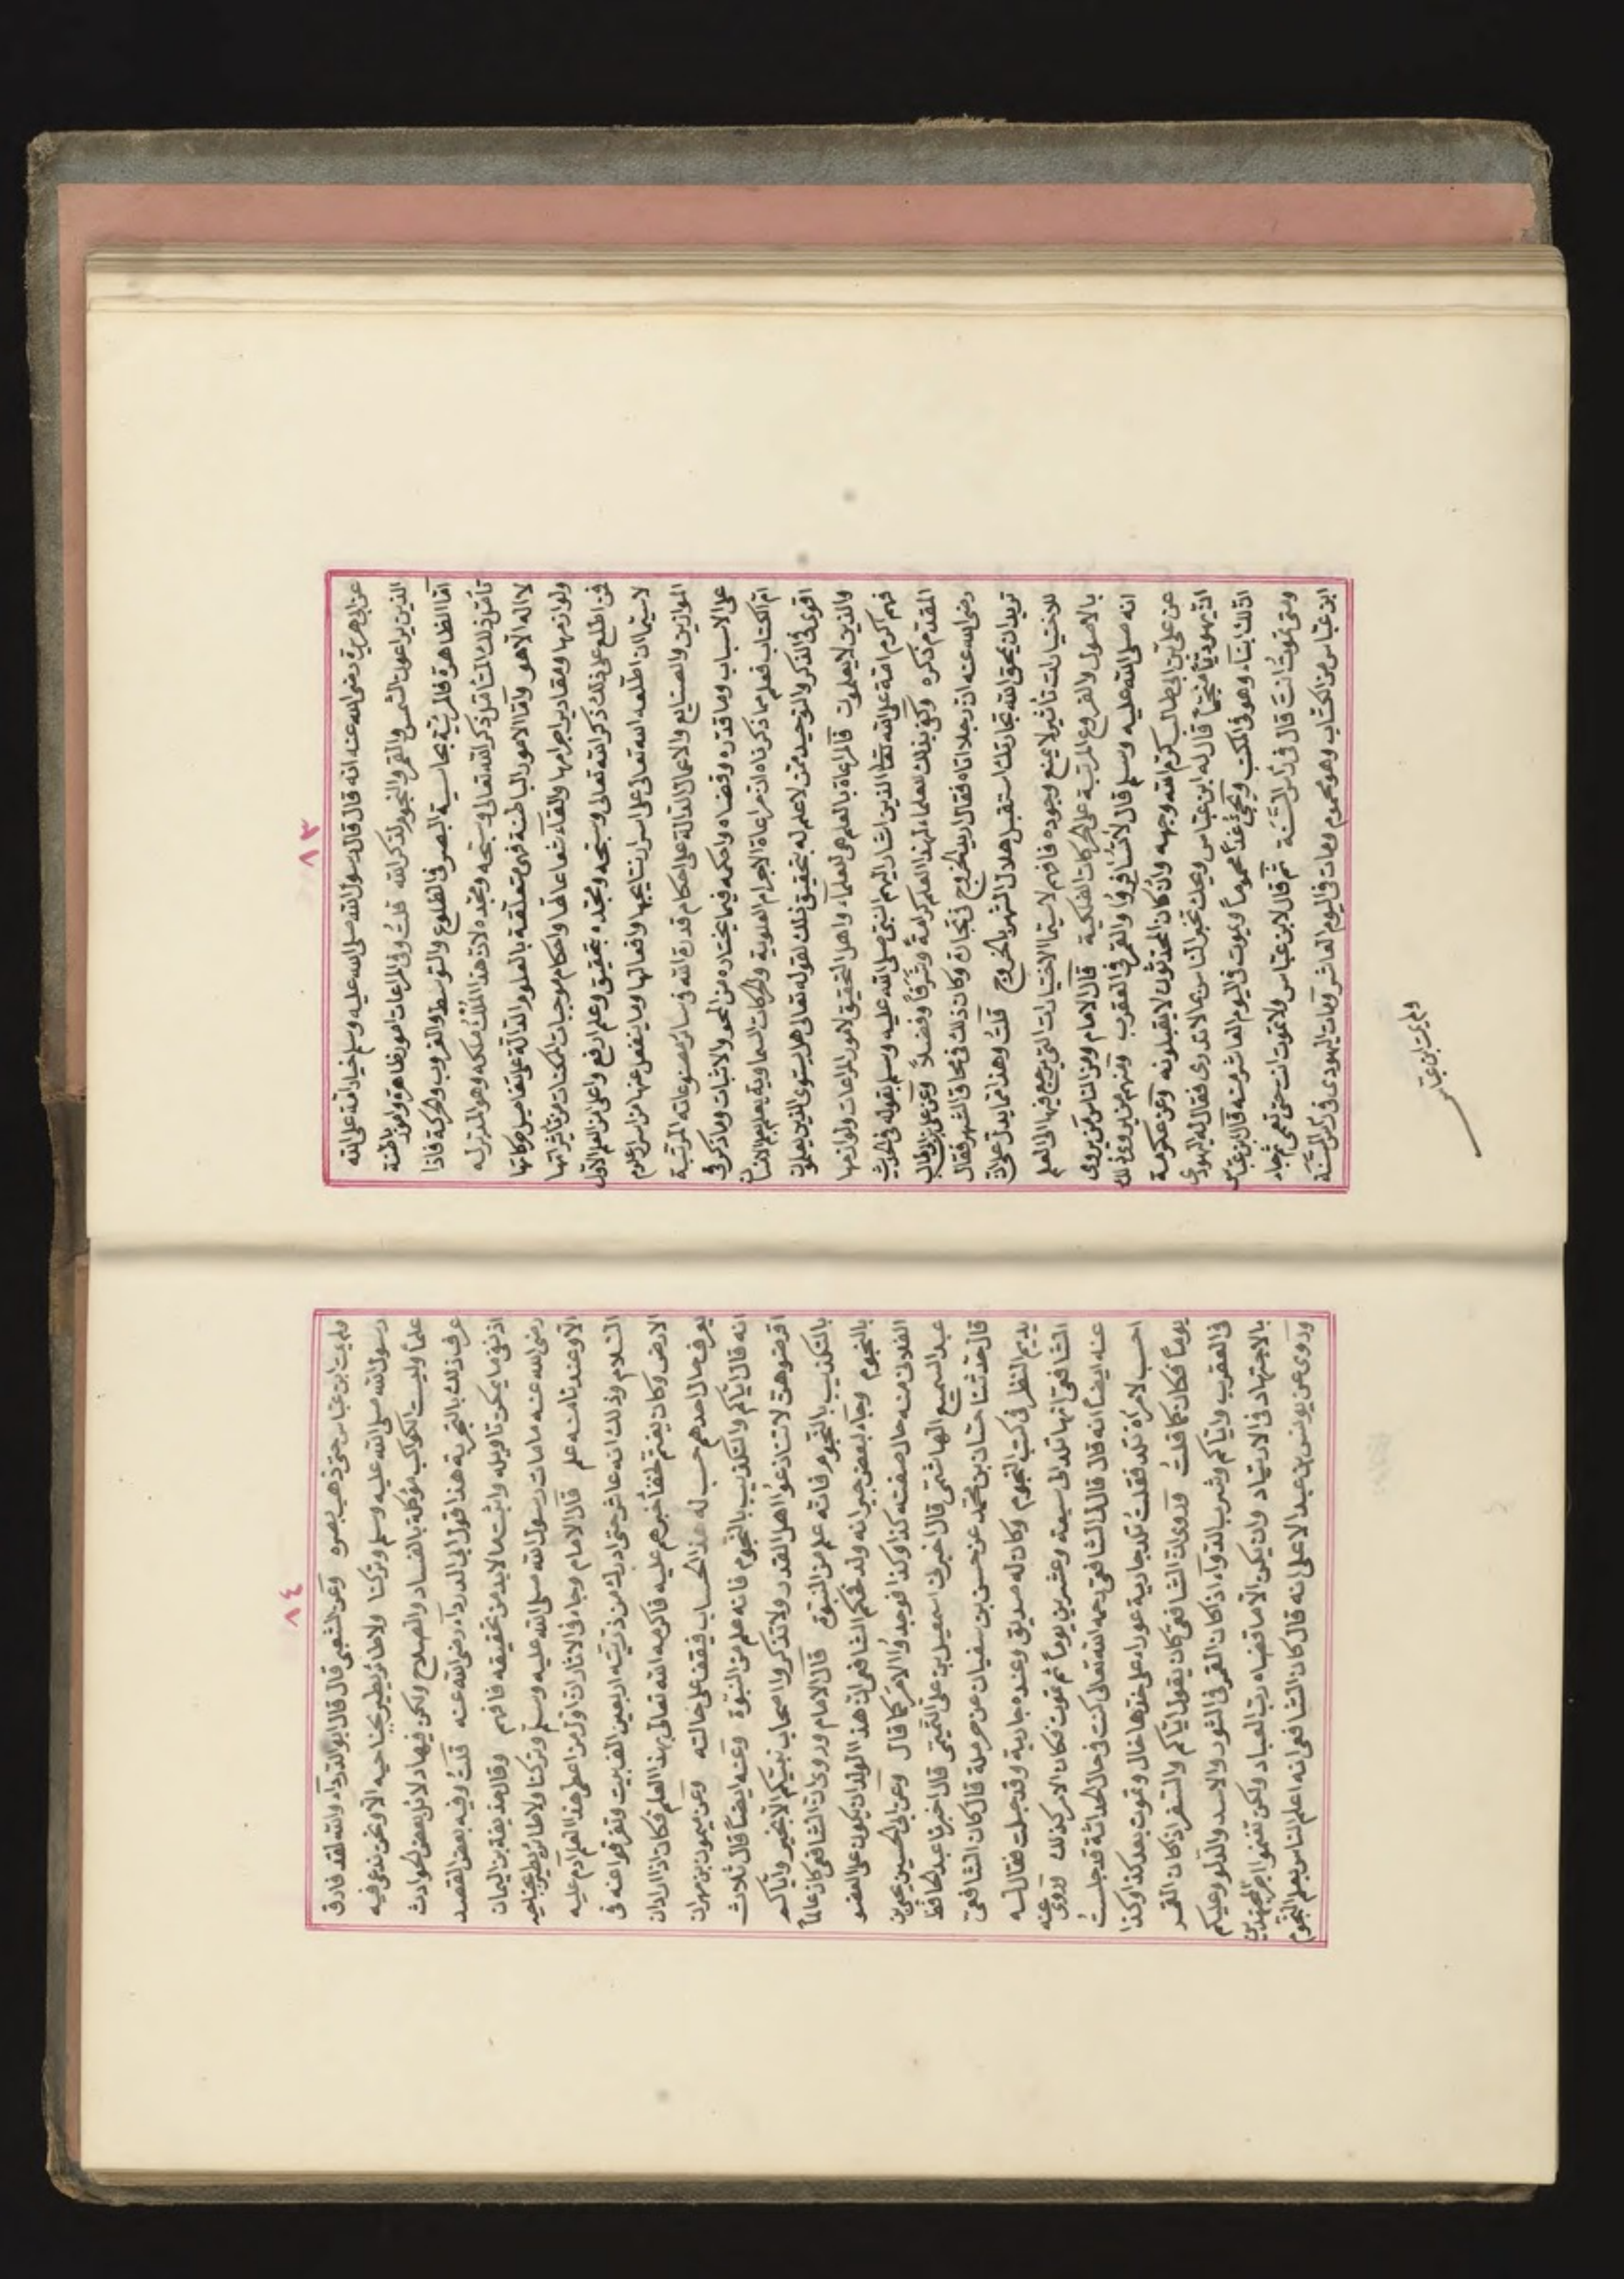 ٨٣
عن ابى هريرة رضى الله عنه انه قال قال رسول الله صلى الله عليه وسلم خيار امة على الله
الذين يراعون الشمس والقمر والنجوم لذكر الله قلتُ وفى المراعات امور ظاهرة وامور باطنة
امّا الظاهرة فالمرئيّة بحاسية البصر فى الطلوع والتوسط والغروب والحركة فاذا
تأمّل ذلك المتأمّل ذكر الله تعالى وسبّحه ومجّده لانّ هذا الملك ملكه وهو المدبّر له
لا اله الا هو وامّا الامور الباطنة فهى متعلّقة بالعلوم الدالّة على تفاصيل حركاتها
ولوازمها ومقادير اجرامها والقاء شعاعاتها واحكام موجبات الممكنات من تأثيراتها
فمن اطّلع على ذلك ذكر الله تعالى وسبّحه ومجّده بتحقيق وعلم ارفع واعلى من العلم الاوّل
لاسيّما ان اطلعه الله تعالى على اسرار نتايجها وافعالها وما ينفعل عنها من اسرار علوم
الموازين والصنايع والاعمال الدالة على احكام قدرة الله فى ساير مصنوعاته المرتّبة
على الاسباب وما قدّره وقضاه واحكمه فيما يختاره من المحو والاثبات وما ذكر فى
امّ الكتاب فعلم مما ذكرناه ان مراعاة الاجرام العلوية والحركات السماوية يعلم بعلم الانسان
اقوى فى الذكر والتوحيد ممّن لا علم له بتحقيق ذلك لقوله تعالى هل يستوى الذين يعلمون
والذين لا يعلمون فالمراعاة بالعلم هى للعلماء واهل التحقيق لامور المراعات ولوازمها
فهم اكرم امة على الله تعالى الذين اشار اليهم النبى صلى الله عليه وسلم بقوله فى الحديث
المقدّم ذكره وكفى بذلك لعلماء لهذا العلم كرامةً وشرفًا وفضلًا وعن على بن ابى طالب
رضى الله عنه ان رجلا اتاه فقال اريد الخروج فى تجارة وكان ذلك فى محاق الشهر فقال
تريد ان يمحق الله تجارتك استقبل هلال الشهر بالخروج قلتُ وهذا ممّا يدلّ على انّ
للاختيارات تأثير لا يمنع وجوده فافهم لاسيّما الاختيارات التى يرجع فيها الى العلم
بالاصول والفروع المرتبة على الحركات الفلكية قال الامام ومن الناس من يروى
انه صلى الله عليه وسلم قال لا تسافروا والقمر فى العقرب ومنهم من يروى ذلك
عن على بن ابى طالب كرم الله وجهه وان كان المحدّثون لا يقبلونه وعن عكرمة
انّ يهوديًّا منجّمًا قال له ابن عبّاس ويحك تخبر الناس بما لا تدرى فقال له اليهودى
انّ لك ابناً وهو فى المكتب ويجئ غدًا محمومًا ويموت فى اليوم العاشر منه قال ابن عبّاس
ومتى تموت انتَ قال فى رأس السّنة ثم قال لابن عبّاس ولا تموت انت حتى تعمى ثم جاء
ابن عبّاس من الكتّاب وهو محموم ومات فى اليوم العاشر ومات اليهودى فى رأس السّنة
ولم يمت ابن عبّاس
٨٤
ولم يمت ابن عبّاس حتى ذهب بصره وعن الشعبى قال قال ابو الدرداء والله لقد فارق
رسول الله صلى الله عليه وسلم وتركنا ولا طائر يطير بجناحيه الا ونحن ندعى فيه
علمًا وليست الكواكب موكلة بالفساد والصلاح ولكن فيها دلائل بعض الحوادث
عرف ذلك بالتجربة هذا قول ابى الدرداء رضى الله عنه قلتُ وفيه بعض القصد
اذ نفى ما يمكن تاويله واثبت ما لا بد من تحقيقه فافهم وقال حذيفة بن اليمان
رضى الله عنه ما مات رسول الله صلى الله عليه وسلم وتركنا ولا طائر يطير بجناحيه
الا وعندنا منه علم قال الامام وجاء فى الاثار ان اول من اعطى هذا العلم آدم عليه
السّلام وذلك انه عاش حتى ادرك من ذريّته اربعين الف بيت وتفرقوا عنه فى
الارض وكان يغتمّ لخفاء خبرهم عليه فاكرمه الله تعالى بهذا العلم فكان اذا اراد ان
يعرف حال احدهم حسب له هذا الحساب فيقف على حالته وعن ميمون بن مهران
انه قال ايّاكم والتكذيب بالنجوم فانه علم من النبوة وعنه ايضًا قال ثلاث
ارفضوهنّ لا تنازعوا اهل القدر ولا تذكروا اصحاب نبيّكم الا بخير وايّاكم
بالتكذيب بالنجوم فانّه علم من النبوّة قال الامام وروى ان الشافعى كان عالمًا
بالنجوم وجاء لبعض جيرانه ولد فحكم الشافعى انّ هذا الولد ان يكون على العضو
الفلانى منه خال صفته كذا وكذا فوجدوا الامر كما قال وعن ابى الحسين يحيى بن
عبد السميع الهاشمى قال اخبرنى اسمعيل بن على التميمى قال اخبرنا عبد الحافظ
قال حدّثنا حسّان بن محمّد عن حسن بن سفيان عن حرملة قال كان الشافعى
يديم النظر فى كتب النجوم وكان له صديق وعنده جارية وقد حبلت فقال له
الشافعى انها تلد الى سبعة وعشرين يومًا ثم تموت فكان الامر كذلك وروى عنه
عنه ايضًا انه قال قال لى الشافعى رحمه الله تعالى كنت فى حال الحداثة قد جلستُ
احسب لامرأة تلد فقلتُ تلد جارية عوراء على خدّها خال وتموت بعد كذا وكذا
يومًا فكان كما قلتُ وروى انّ الشافعى كان يقول ايّاكم والسفر اذا كان القمر
فى العقرب وايّاكم وشرب الدّواء اذا كان القمر فى الثور والاسد والدلو وعليكم
بالاجتهاد فى الارتياد وان يكن الا ما قضاه ربّ العباد ولكن تغنموا اجر المجتهدين
وروى عن يونس بن عبد الاعلى انه قال كان الشافعى انه اعلم الناس بعلم النجوم